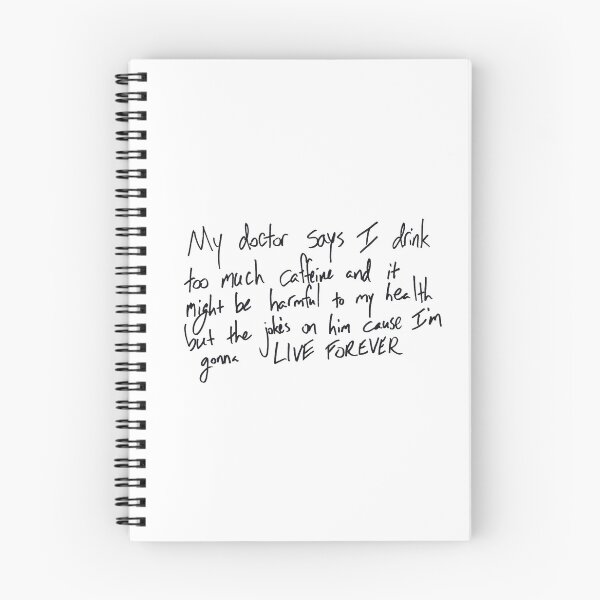 My doctor says I drink
too much caffeine and it
might be harmful to my health
but the joke's on him cause I'm
gonna LIVE FOREVER